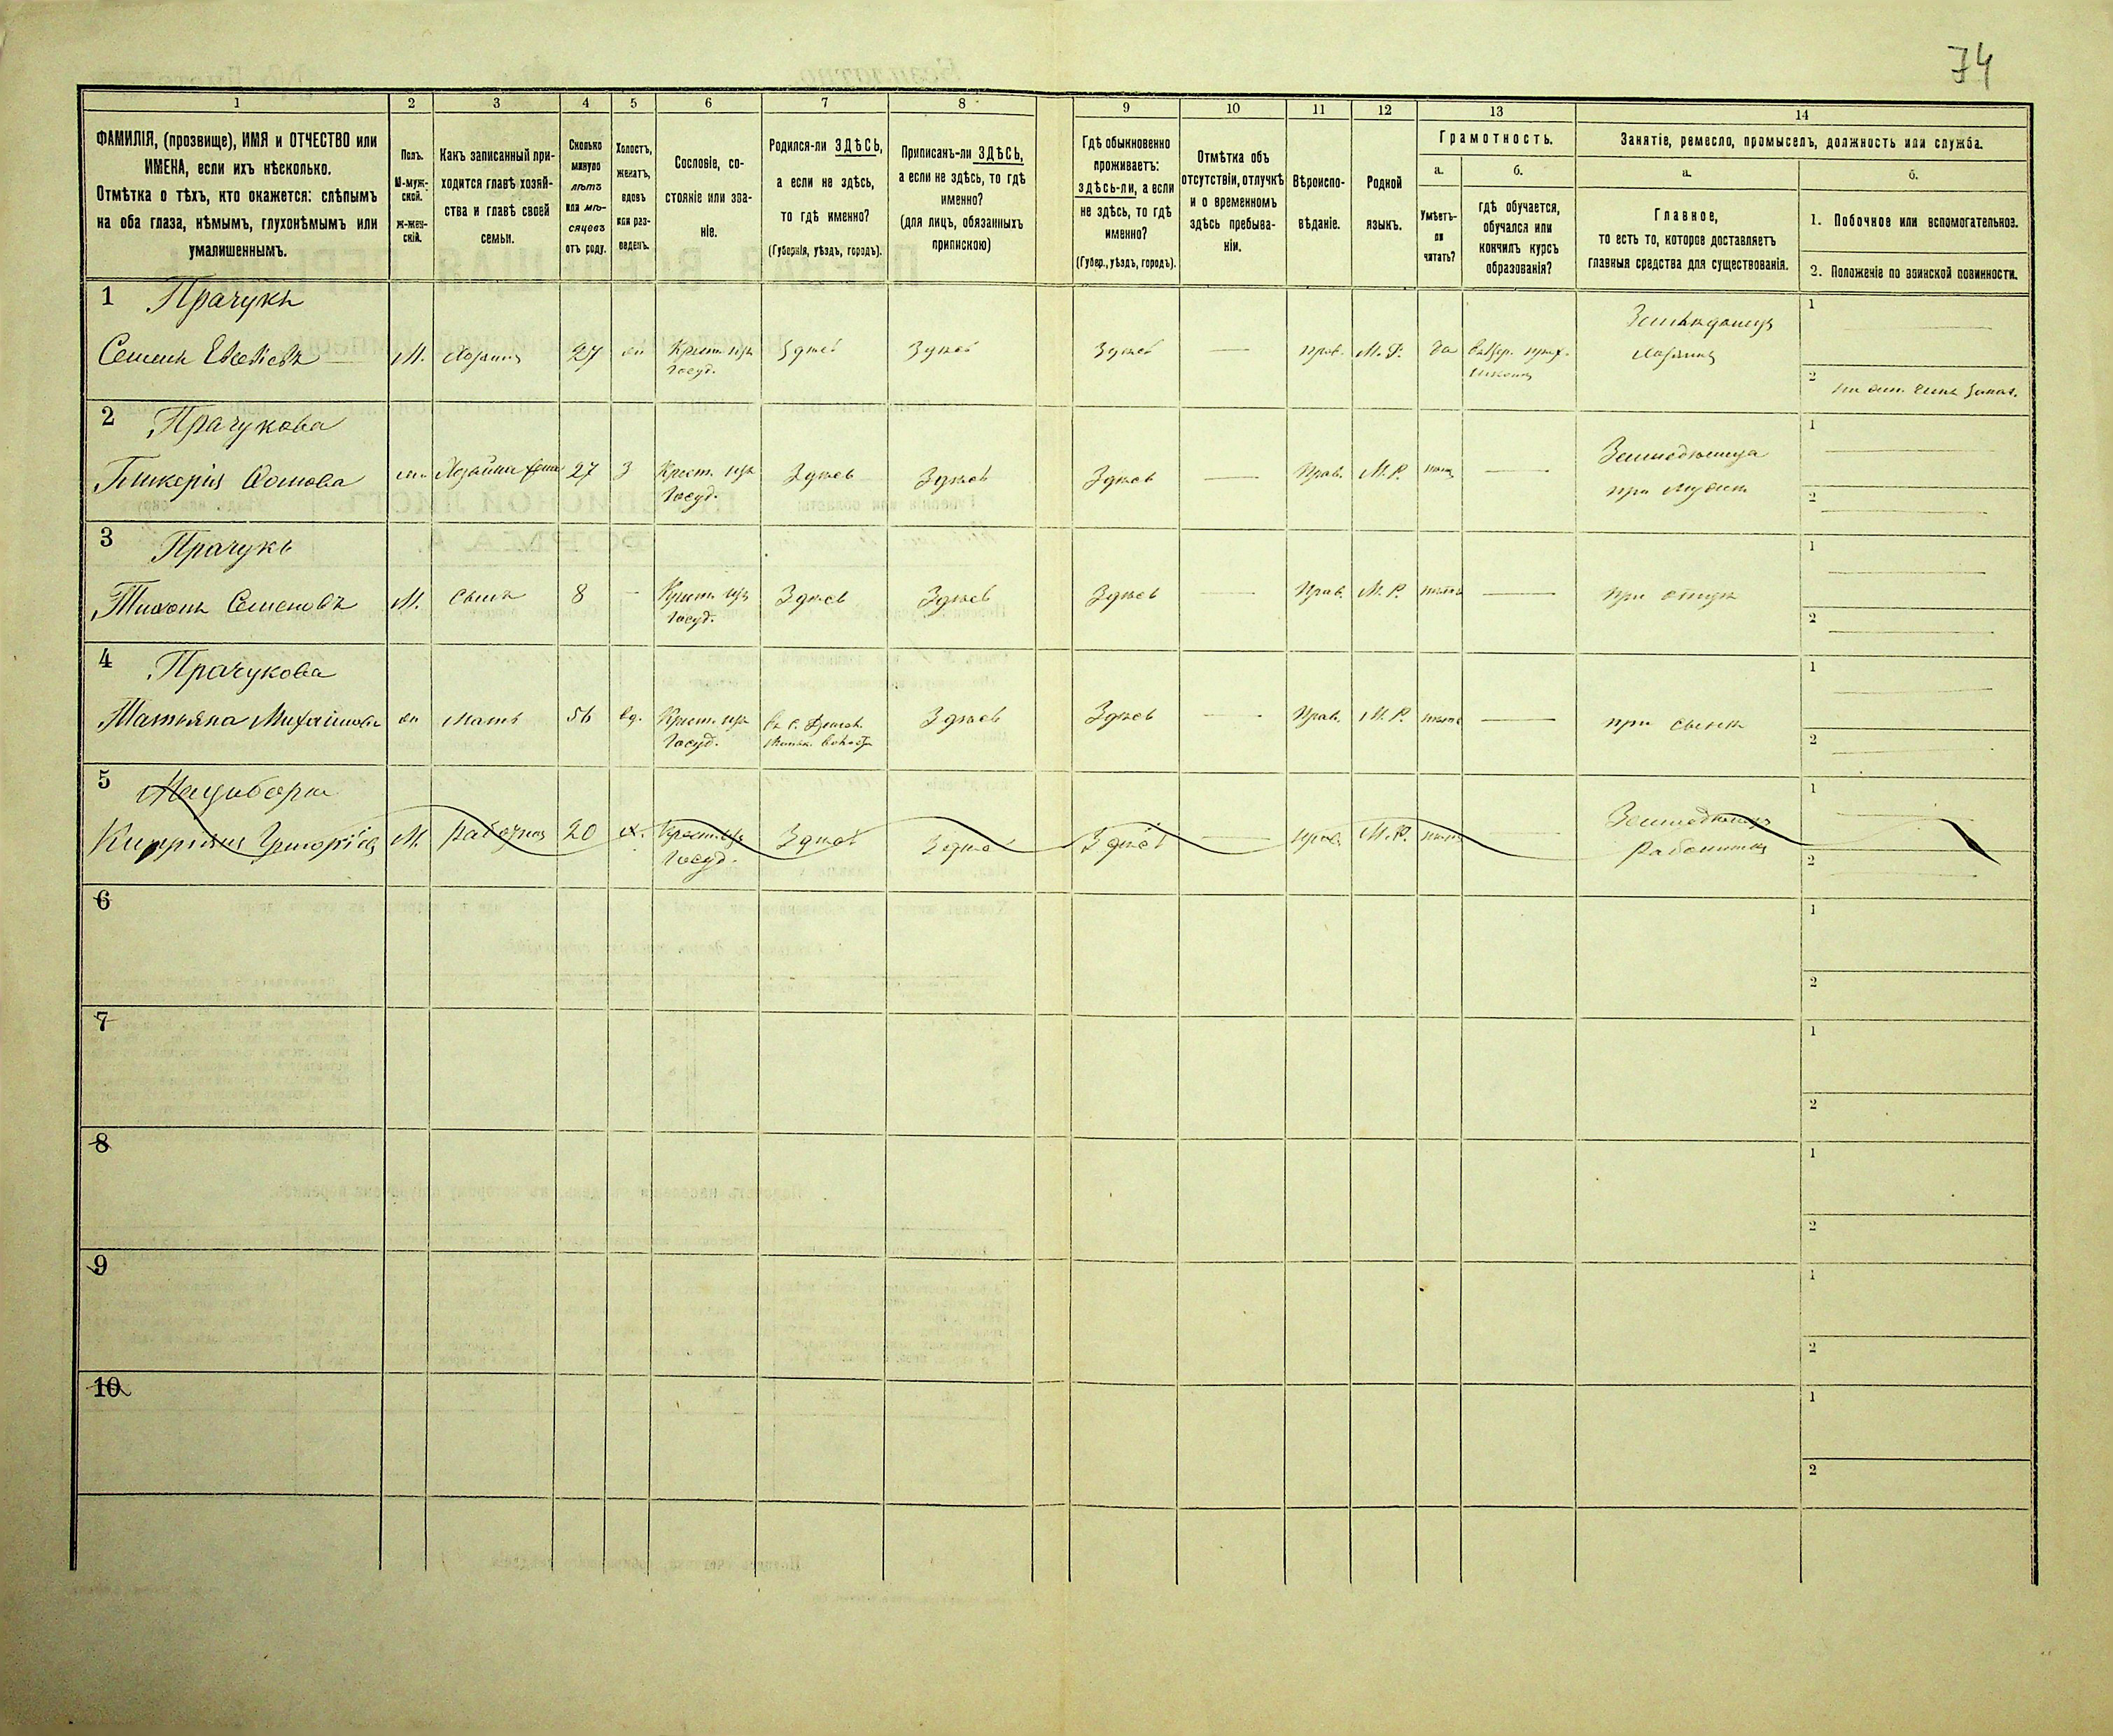 74
1 2 3 4 5 6 7 8 9 10 11 12 13 14
ФАМИЛІЯ, (прозвище), ИМЯ и ОТЧЕСТВО или
ИМЕНА, если ихъ нѣсколько.
Отмѣтка о тѣхъ, кто окажется: слѣпымъ
на оба глаза, нѣмымъ, глухонѣмымъ или
умалишеннымъ.
Полъ.
М-муж-
ской.
ж-жен-
скій.
Какъ записанный при-
ходится главѣ хозяй-
ства и главѣ своей
семьи.
Сколько
минуло
лѣтъ
или мѣ-
сяцевъ
отъ роду.
Холостъ,
женатъ,
вдовъ
или раз-
веденъ.
Сословіе, со-
стояніе или зва-
ніе.
Родился-ли ЗДѢСЬ,
а если не здѣсь,
то гдѣ именно?
(Губернія, уѣздъ, городъ).
Приписанъ-ли ЗДѢСЬ,
а если не здѣсь, то гдѣ
именно?
(для лицъ, обязанныхъ
припискою)
Гдѣ обыкновенно
проживаетъ:
здѣсь-ли, а если
не здѣсь, то гдѣ
именно?
(Губер., уѣздъ, городъ).
Отмѣтка объ
отсутствіи, отлучкѣ
и о временномъ
здѣсь пребыва-
ніи.
Вѣроиспо-
вѣданіе.
Родной
языкъ.
Грамотность.
а.
Умѣетъ-
ли
читать?
б.
гдѣ обучается,
обучался или
кончилъ курсъ
образованія?
Занятіе, ремесло, промыселъ, должность или служба.
а.
Главное,
то есть то, которое доставляетъ
главныя средства для существованія.
б.
1. Побочное или вспомогательное.
2. Положеніе по воинской повинности.
1 Прачукъ
Семенъ Евсѣевъ М. Хозяинъ 27 жн Крест. изъ Здѣсь Здѣсь Здѣсь — прав. М. Р. да
Госуд.
школѣ
Хозяинъ
1
2
2 Прачукова
Гликерія Фомова жн Хозяина жена 27 З Крест. изъ Здѣсь Здѣсь Здѣсь — Прав. М. Р. нѣтъ —
Госуд.
при мужѣ
1
2
3 Прачукъ
Тихонъ Семеновъ М. сынъ 8 - Крест. изъ Здѣсь Здѣсь Здѣсь — Прав. М. Р. нѣтъ — при отцѣ
Госуд.
1
2
4 Прачукова
Татьяна Михайлова жн мать 56 вд. Крест. изъ Здѣсь Здѣсь — Прав. М. Р. нѣтъ — при сынѣ
Госуд.
1
2
5 Мацибора
Кипріянъ Григорьевъ М. Работник 20 х. Крест. изъ Здѣсь Здѣсь Здѣсь — прав. М. Р. нѣтъ —
Госуд.
Работникъ
1
2
6
1
2
7
1
2
8
1
2
9
1
2
10
1
2